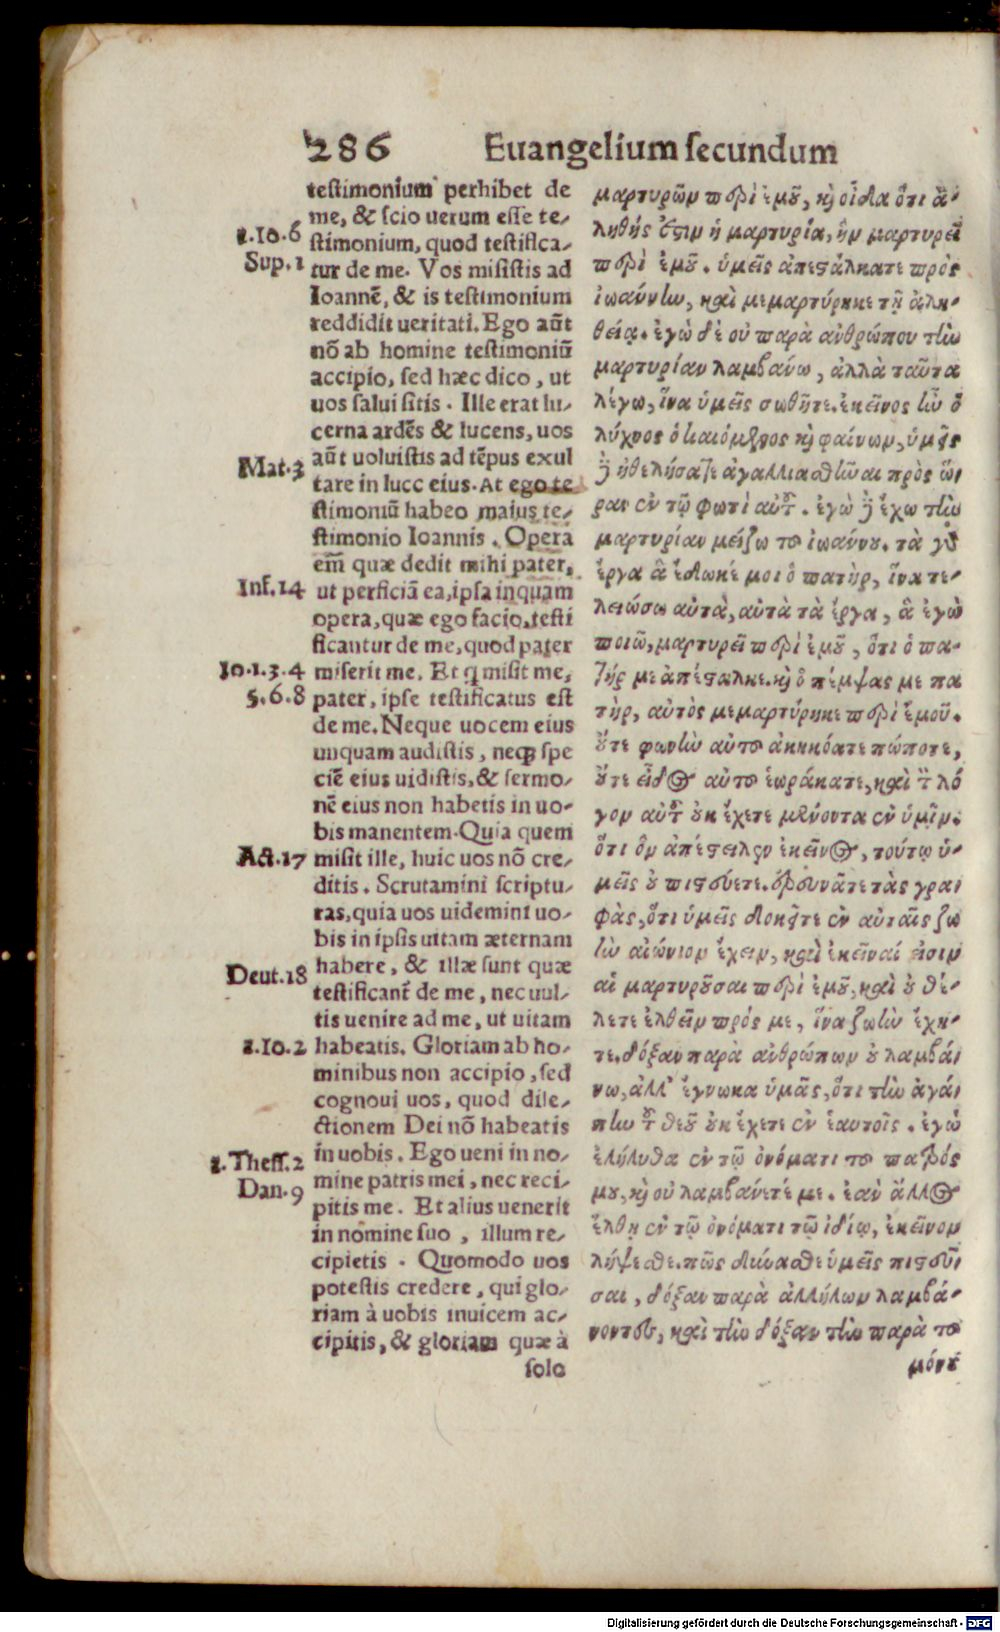 286 Euangelium ſecundum
teſtimonium perhibet de
me, & ſcio uerum eſſe te-
ſtimonium, quod teſtifica-
tur de me. Vos miſiſtis ad
Ioannē, & is teſtimonium
reddidit ueritati. Ego aūt
nō ab homine teſtimoniū
accipio, ſed hæc dico, ut
uos ſalui ſitis. Ille erat lu-
cerna ardēs & lucens, uos
aūt uoluiſtis ad tēpus exul
tare in luce eius. At ego te
ſtimoniū habeo maius te-
ſtimonio Ioannis. Opera
em̄ quæ dedit mihi pater,
ut perficiā ea, ipſa inquam
opera, quæ ego facio, teſti
ficantur de me, quod pater
miſerit me. Et q miſit me,
pater, ipſe teſtificatus eſt
de me. Neque uocem eius
unquam audiſtis, neq; ſpe
ciē eius uidiſtis, & ſermo-
nē eius non habetis in uo-
bis manentem. Quia quem
miſit ille, huic uos nō cre-
ditis. Scrutamini ſcriptu-
ras, quia uos uidemini uo-
bis in ipſis uitam æternam
habere, & illæ ſunt quæ
teſtificant̄ de me, nec uul-
tis uenire ad me, ut uitam
habeatis. Gloriam ab ho-
minibus non accipio, ſed
cognoui uos, quod dile-
ctionem Dei nō habeatis
in uobis. Ego ueni in no-
mine patris mei, nec reci-
pitis me. Et alius uenerit
in nomine ſuo, illum re-
cipietis. Quomodo uos
poteſtis credere, qui glo-
riam à uobis inuicem ac-
cipitis, & gloriam quæ à
ſolo
1.Io.6
Sup.1
Mat.3
Inf.14
Io.1.3.4
5.6.8
Act.17
Deut.18
1.Io.2
2.Theſſ.2
Dan.9
μαρτυρῶν περὶ ἐμοῦ, καὶ οἶδα ὅτι ἀ-
ληθής ἐστιν ἡ μαρτυρία, ἣν μαρτυρεῖ
περὶ ἐμοῦ. ὑμεῖς ἀπεστάλκατε πρὸς
ἰωάννην, καὶ μεμαρτύρηκε τῇ ἀλη-
θείᾳ. ἐγὼ δὲ οὐ παρὰ ἀνθρώπου τὴν
μαρτυρίαν λαμβάνω, ἀλλὰ ταῦτα
λέγω, ἵνα ὑμεῖς σωθῆτε. ἐκεῖνος ἦν ὁ
λύχνος ὁ καιόμενος καὶ φαίνων, ὑμεῖς
δὲ ἠθελήσατε ἀγαλλιασθῆναι πρὸς ὥ-
ραν ἐν τῷ φωτὶ αὐτοῦ. ἐγὼ δὲ ἔχω τὴν
μαρτυρίαν μείζω τοῦ ἰωάννου. τὰ γὰρ
ἔργα ἃ ἔδωκέ μοι ὁ πατὴρ, ἵνα τε-
λειώσω αὐτὰ, αὐτὰ τὰ ἔργα, ἃ ἐγὼ
ποιῶ, μαρτυρεῖ περὶ ἐμοῦ, ὅτι ὁ πα-
τήρ με ἀπέσταλκε. καὶ ὁ πέμψας με πα
τὴρ, αὐτὸς μεμαρτύρηκε περὶ ἐμοῦ.
οὔτε φωνὴν αὐτοῦ ἀκηκόατε πώποτε,
οὔτε εἶδος αὐτοῦ ἑωράκατε, καὶ τὸν λό
γον αὐτοῦ οὐκ ἔχετε μένοντα ἐν ὑμῖν.
ὅτι ὃν ἀπέστειλεν ἐκεῖνος, τούτῳ ὑ-
μεῖς οὐ πιστεύετε. ἐρευνᾶτε τὰς γρα-
φὰς, ὅτι ὑμεῖς δοκεῖτε ἐν αὐταῖς ζω
ὴν αἰώνιον ἔχειν, καὶ ἐκεῖναί εἰσιν
αἱ μαρτυροῦσαι περὶ ἐμοῦ, καὶ οὐ θέ-
λετε ἐλθεῖν πρός με, ἵνα ζωὴν ἔχη-
τε. δόξαν παρὰ ἀνθρώπων οὐ λαμβά-
νω, ἀλλ' ἔγνωκα ὑμᾶς, ὅτι τὴν ἀγά-
πην τοῦ θεοῦ οὐκ ἔχετε ἐν ἑαυτοῖς. ἐγὼ
ἐλήλυθα ἐν τῷ ὀνόματι τοῦ πατρός
μου, καὶ οὐ λαμβάνετέ με. ἐὰν ἄλλος
ἔλθῃ ἐν τῷ ὀνόματι τῷ ἰδίῳ, ἐκεῖνον
λήψεσθε. πῶς δύνασθε ὑμεῖς πιστεῦ-
σαι, δόξαν παρὰ ἀλλήλων λαμβά-
νοντες, καὶ τὴν δόξαν τὴν παρὰ τοῦ
μόνου
Digitalisierung gefördert durch die Deutsche Forschungsgemeinschaft - DFG